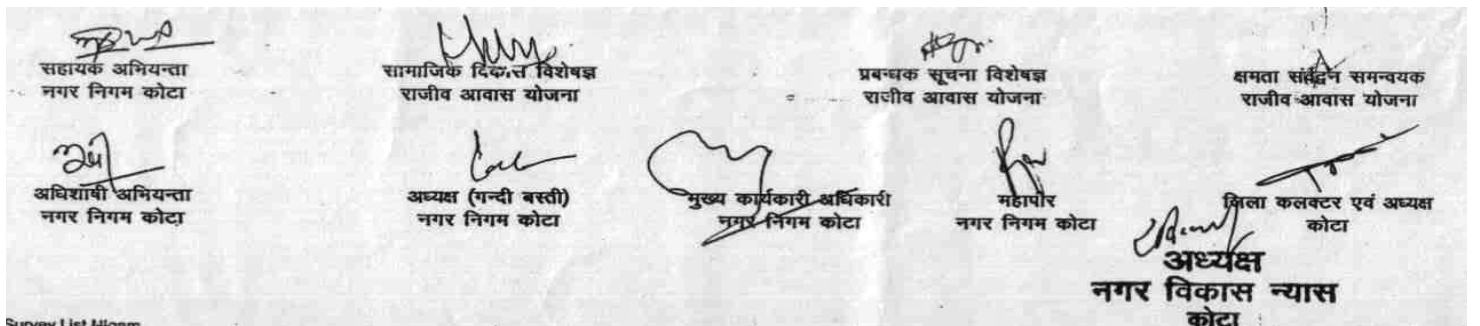 सहायक अभियन्ता
नगर निगम कोटा
सामाजिक विकास विशेषज्ञ
राजीव आवास योजना
प्रबन्धक सूचना विशेषज्ञ
राजीव आवास योजना
क्षमता संवर्द्धन समन्वयक
राजीव आवास योजना
अधिशाषी अभियन्ता
नगर निगम कोटा
अध्यक्ष (गन्दी बस्ती)
नगर निगम कोटा
मुख्य कार्यकारी अधिकारी
नगर निगम कोटा
महापौर
नगर निगम कोटा
जिला कलक्टर एवं अध्यक्ष
कोटा
अध्यक्ष
नगर विकास न्यास
कोटा
Survey List